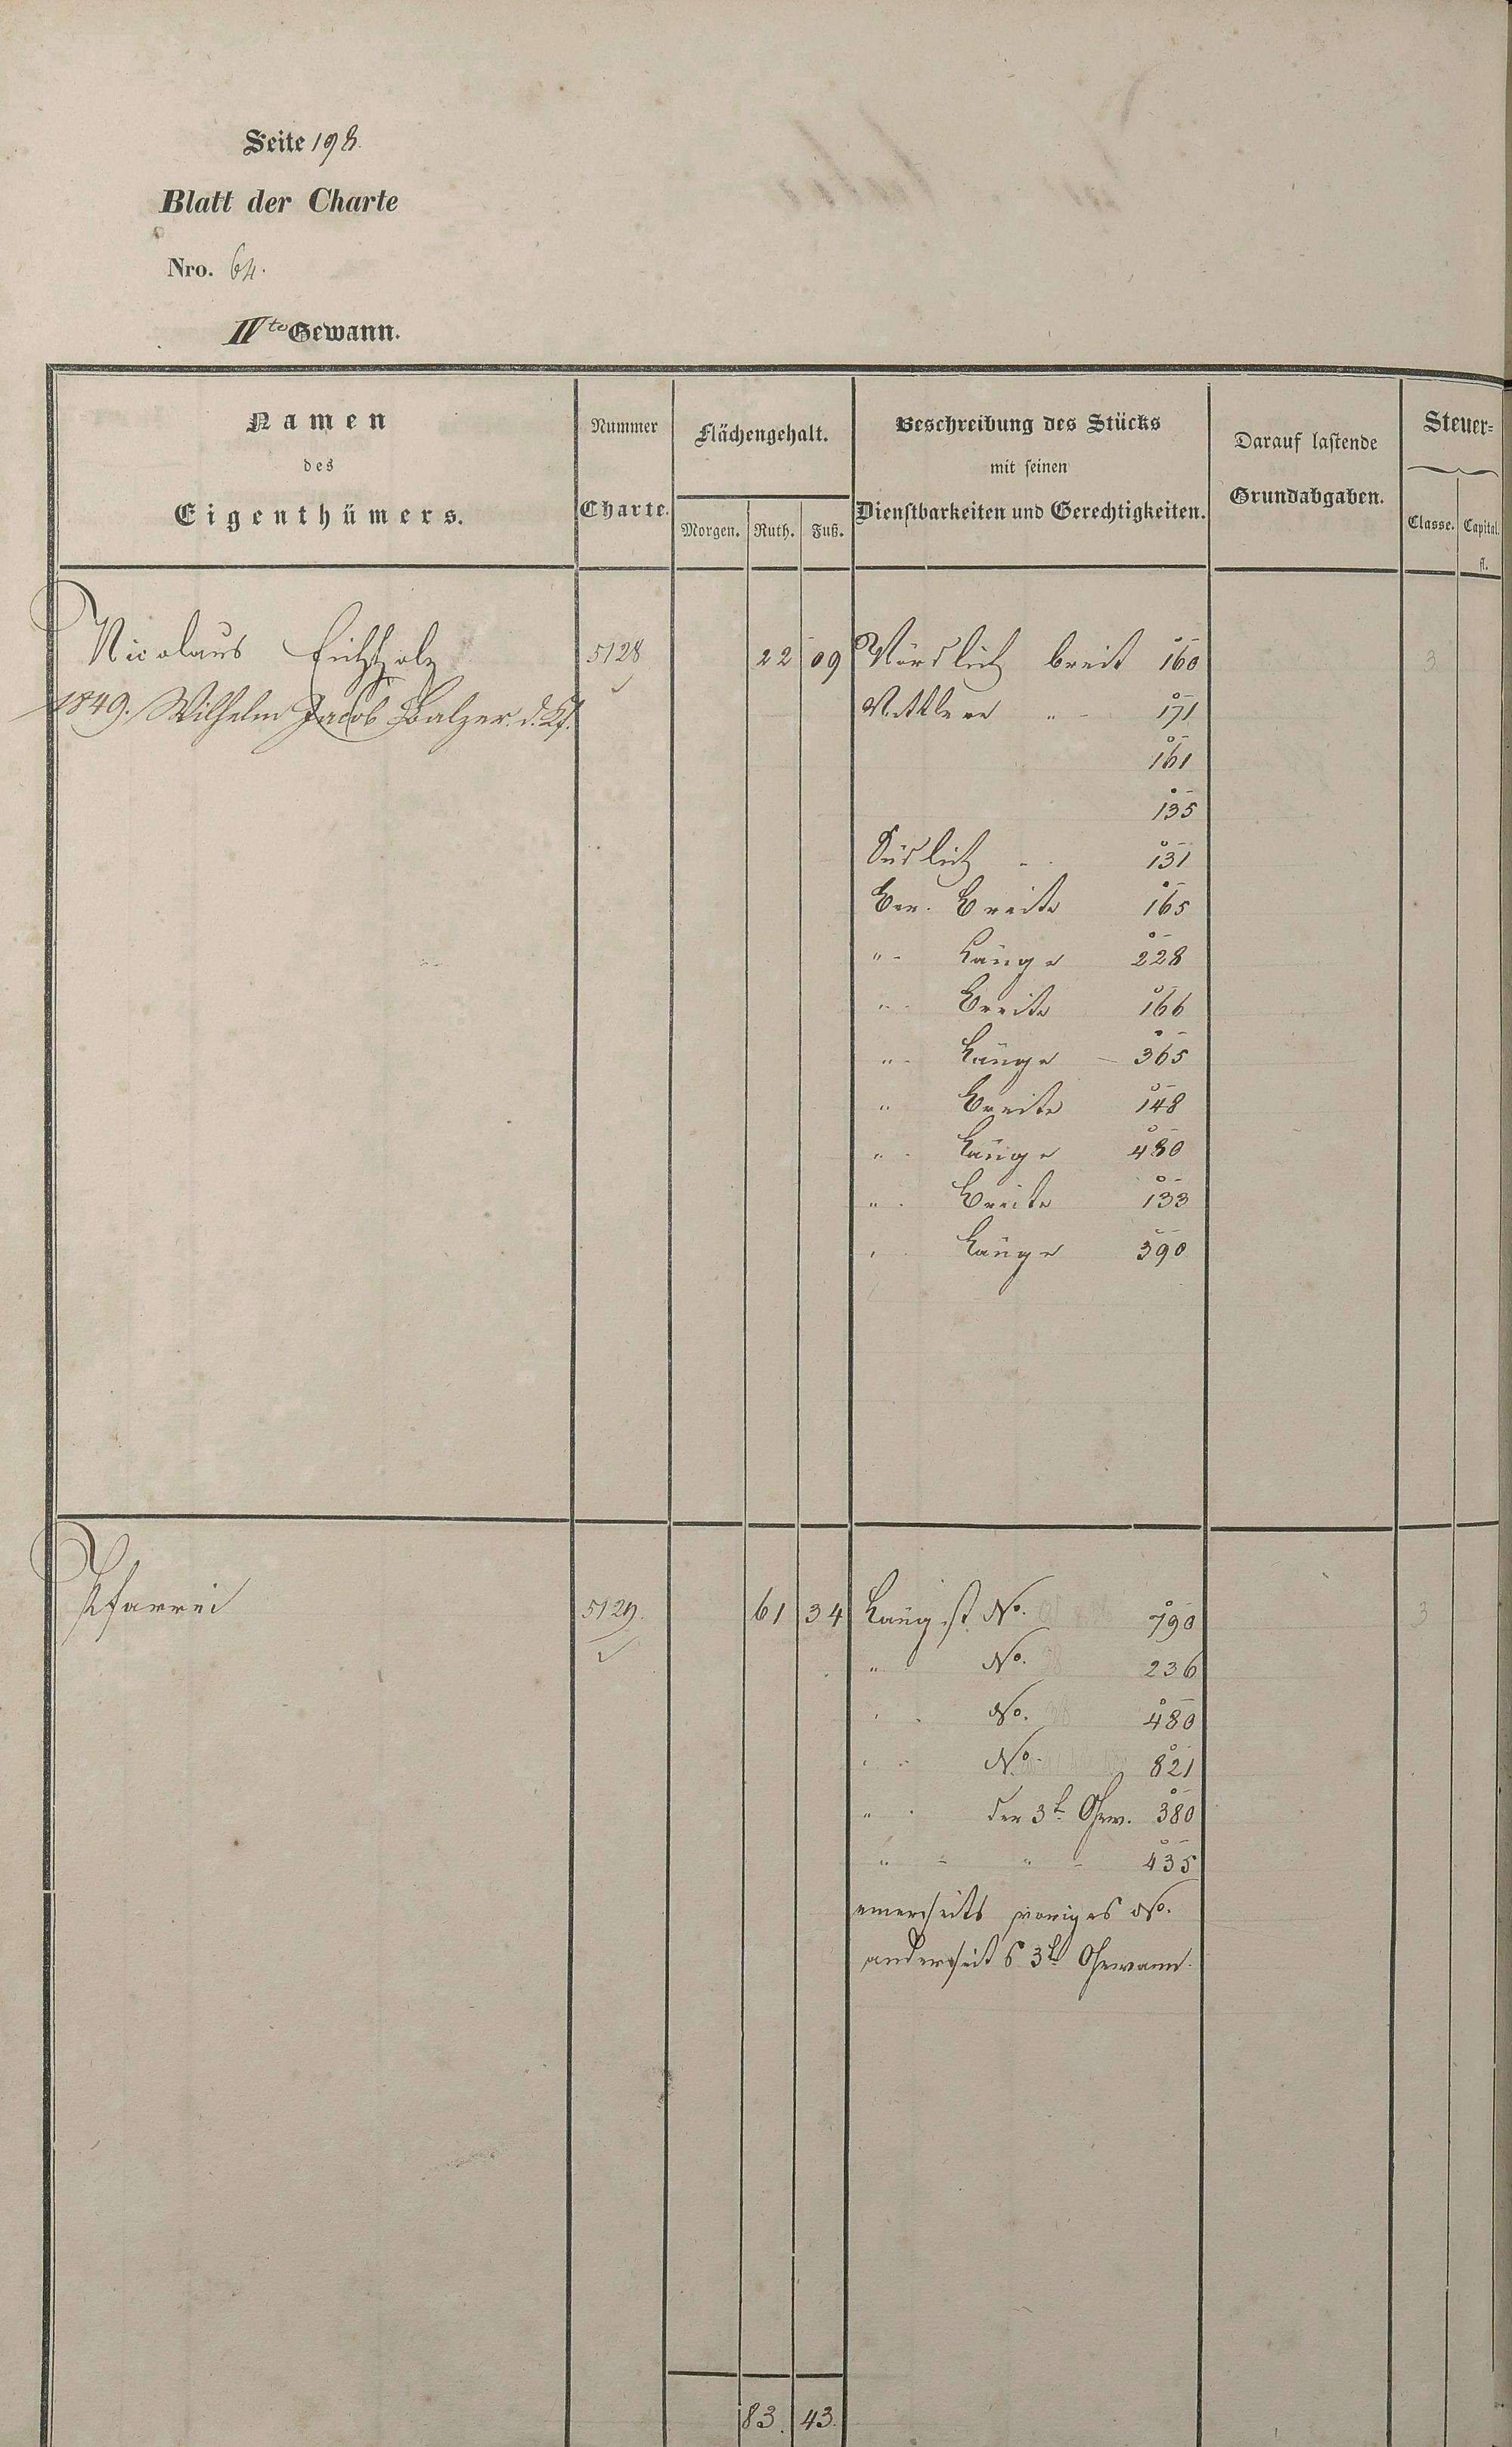 Seite 198.
Blatt der Charte
Nro. 64.
IVte Gewann.
Namen
des
Eigenthümers.
Nummer
Charte.
Flächengehalt.
Morgen. Ruth. Fuß.
Beschreibung des Stücks
mit seinen
Dienstbarkeiten und Gerechtigkeiten.
Darauf lastende
Grundabgaben.
Steuer=
Classe. Capital.
fl.
Nicolaus Eichholz 5128 22 09 Nördlich breit 160 3
1849. Wilhelm Jacob Balzer. d. Kf. Mittlere " - 171
161
135
Südlich - . 131
Ber. Breite 165
" - Länge 228
" - Breite 166
" - Länge - 365
" Breite 148
" - Länge 480
" . Breite 133
" Länge 390
Pfarrei 5129. 61 34 Längst No. 790 3
" No. 236
" . No. 480
" - No. 821
" . der 3t. Gew. 380
" - " - 435
einerseits voriges No.
anderseits 3te Gewann.
83. 43.